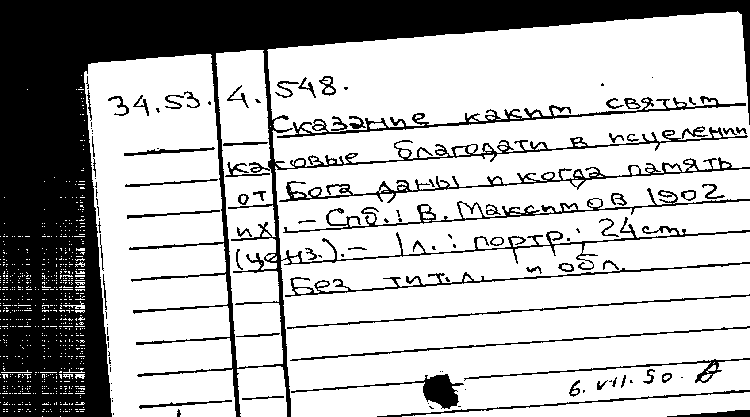 34.53.4.548.
Сказание каким святым
каковые благодати в исцелении
от Бога даны и когда память
их. - Спб.: В. Максимов, 1902
(ценз.). - 1л.: портр.; 24 cm.
Без тит.л. и обл.
6.VII.50.